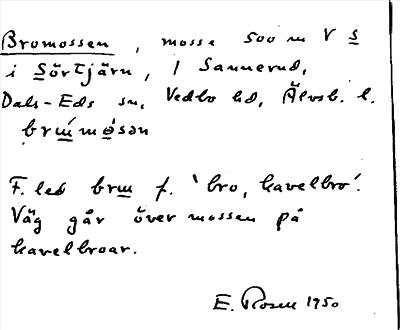 Bromossen, mosse 500 m V s
i Sörtjärn, / Sannerud,
Dals-Eds sn, Vedbo hd, Älvsb. l.
brɯ́mø̀sən
F. led brɯ f. 'bro, kavelbro'.
Väg går över mossen på
kavelbroar.
E. Rosen 1950